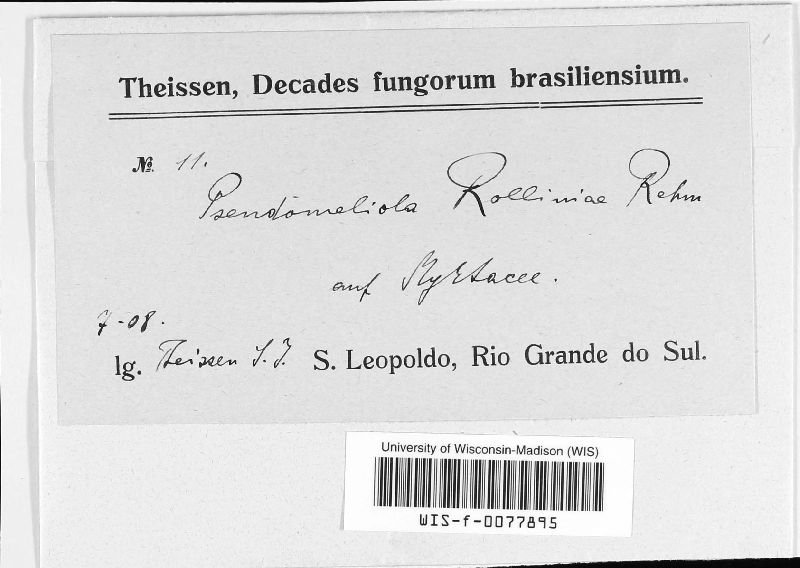 Theissen, Decades fungorum brasiliensium.
№. 11.
Pseudomeliola Rolliniae Rehm
auf Myrtacee.
7-08.
lg. Theissen S.J. S. Leopoldo, Rio Grande do Sul.
University of Wisconsin-Madison (WIS)
WIS-f-0077895